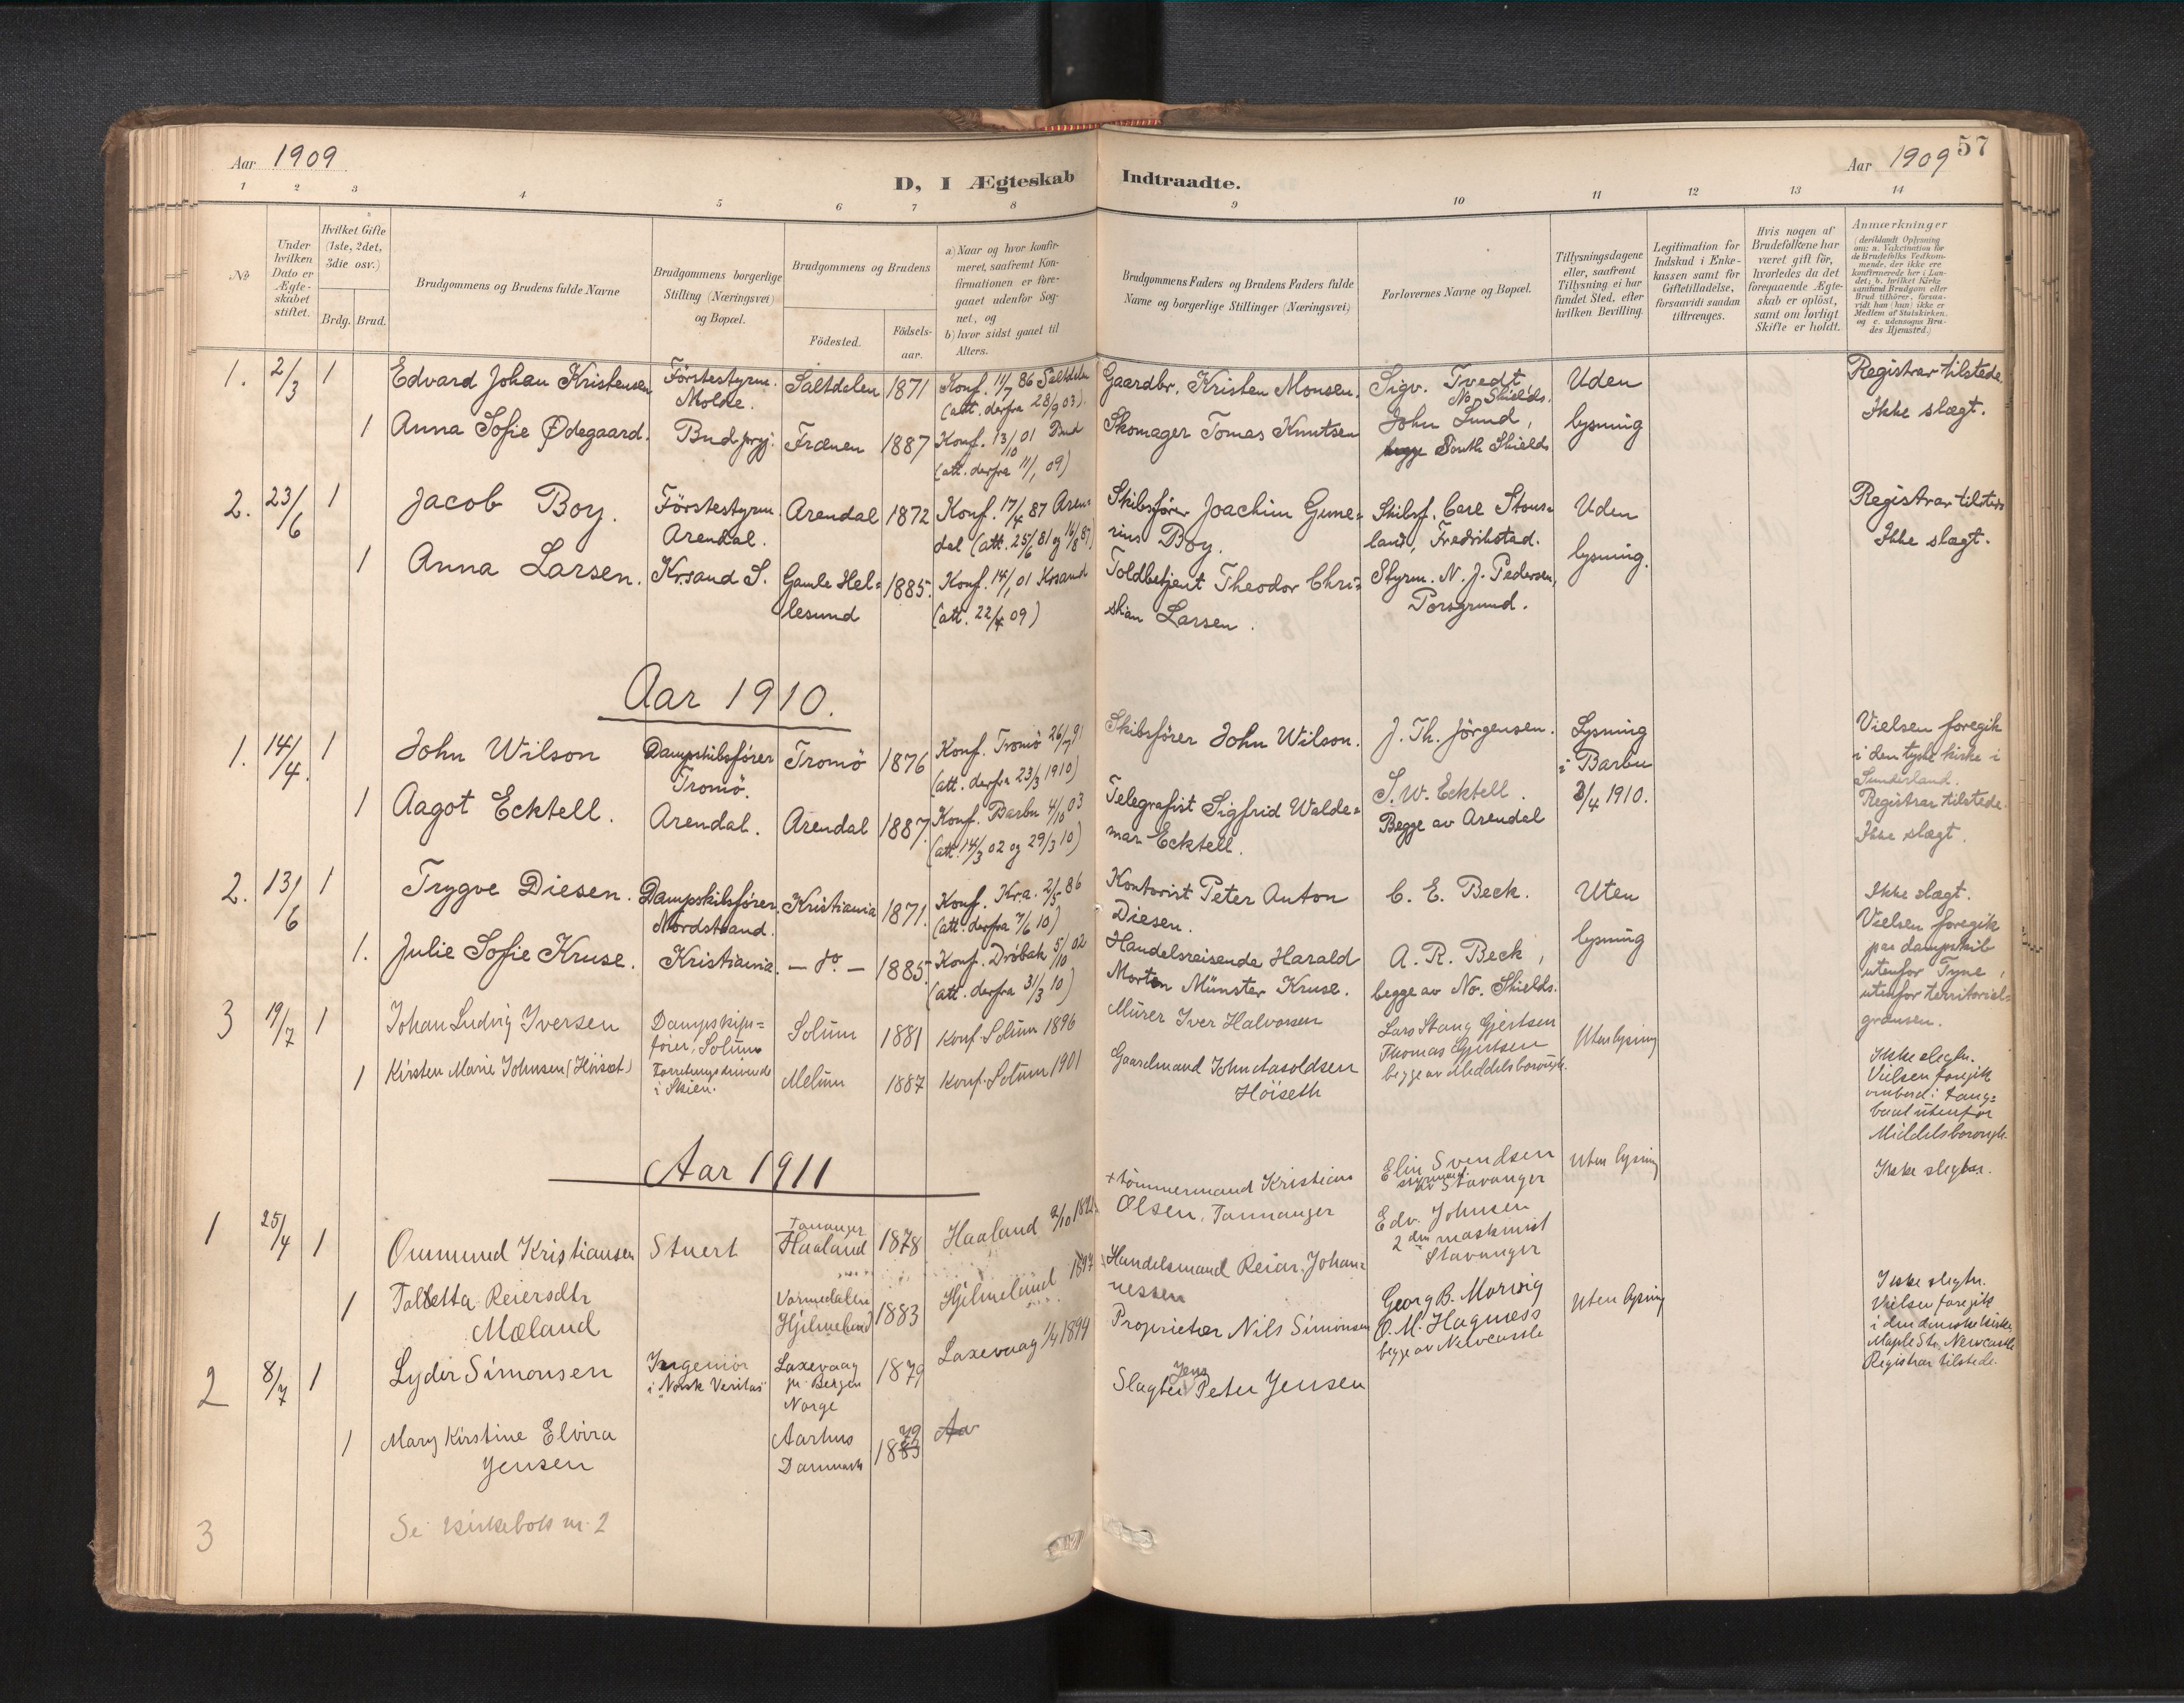 Aar 1909
D, I Ægteskab Indtraadte.
Aar 1909
57
1 2 3 4 5 6 7 8 9 10 11 12 13 14
No
Under hvilken Dato er Ægte-skabet stiftet.
Hvilket Gifte (1ste, 2det, 3die osv.)
Brdg. Brud.
Brudgommens og Brudens fulde Navne
Brudgommens borgerlige Stilling (Næringsvei) og Bopæl.
Brudgommens og Brudens
Födested.
Födsels-aar.
a) Naar og hvor konfir-meret, saafremt Kon-firmationen er fore-gaaet udenfor Sog-net, og
b) hvor sidst gaaet til Alters.
Brudgommens Faders og Brudens Faders fulde Navne og borgerlige Stillinger (Næringsvei)
Forlovernes Navne og Bopæl.
Tillysningsdagene eller, saafremt Tillysning ei har fundet Sted, efter hvilken Bevilling.
Legitimation for Indskud i Enke-kassen samt for Giftetilladelse, forsaavidt saadan tiltrænges.
Hvis nogen af Brudefolkene har været gift för, hvorledes da det foregaaende Ægte-skab er oplöst, samt om lovligt Skifte er holdt.
Anmærkninger
(deriblandt Oplysning om: a. Vakcination for de Brudefolks Vedkom-mende, der ikke ere konfirmerede her i Lan-det; b. hvilket Kirke samfund Brudgom eller Brud tilhörer, forsaa-vidt han (hun) ikke er Medlem af Statskirken. og c. udensogns Bru-des Hjemsted.)
1. 2/3 1 Edvard Johan Kristensen Förstestyrm. Molde. Saltdalen 1871 Konf. 11/7 86 Saltdalen (att. derfra 28/9 03). Gaardbr. Kristen Monsen. Sigv. Tvedt, No. Shields. Uden Registrar tilstede. Ikke slægt.
1 Anna Sofie Ødegaard. Bud prgj. Frænen 1887 Konf. 13/10 01 Bud (att. derfra 11/1 09) Skomager Tomas Knutsen John Lund, begge South Shields lysning
2. 23/6 1 Jacob Boy. Förstestyrm. Arendal. Arendal 1872 Konf. 17/4 87 Aren-dal (att. 25/6 81 og 16/8 87) Skibsfører Joachim Gune-rius Boy. Skibsf. Carl Stous-land, Fredrikstad. Uden Registrar tilstede Ikke slægt.
1 Anna Larsen. Krsand S. Gamle Hel-lesund 1885. Konf. 14/1 01 Krsand (att. 22/4 09) Toldbetjent Theodor Chri-stian Larsen. Styrm. N. J. Pedersen, Porsgrund. lysning.
Aar 1910.
1. 14/4. 1 John Wilson Dampskibsfører Tromö. Tromö 1876 Konf. Tromö 26/7 91 (att. derfra 23/3 1910) Skibsfører John Wilson. J. Th. Jörgensen. Lysning i Barbu 3/4 1910. Vielsen foregik i den tyske kirke i Sunderland. Registrar tilstede. Ikke slægt.
1 Aagot Ecktell. Arendal. Arendal 1887. Konf. Barbu 4/10 03 (att. 14/3 02 og 29/3 10) Telegrafist Sigfrid Walde-mar Ecktell. S. W. Ecktell. Begge av Arendal
2. 13/6 1 Trygve Diesen. Dampskibsfører. Nordstrand. Kristiania 1871. Konf. Kra. 2/5 86 (att. derfra 7/6 10) Kontorist Peter Anton Diesen. C. E. Beck. Uten Ikke slægt. Vielsen foregik paa dampskib utenfor Tyne, utenfor territorial-grænsen.
1. Julie Sofie Kruse. Kristiania. — do. — 1885. Konf. Dröbak 5/10 02 (att. derfra 31/3 10) Handelsreisende Harald Morten Münster Kruse. A. R. Beck, begge av No. Shields. lysning
3 19/7 1 Johan Ludvig Iversen Dampskips-fører, Solum Solum 1881 Konf. Solum 1896 Mürer Iver Halvorsen Lars Stang Gjertsen Thomas Gjertsen begge av Middelsborough. Uten lysning Ikke slegtn. Vielsen foregik ombord i taug-baat utenfor Middelsborough.
1 Kirsten Marie Johnsen (Höiset) i Skien. Melum 1887 Konf. Solum 1901 Gaardmand John Aasoldsen Höiseth
Aar 1911
1 25/4 1 Ommund Kristiansen Stuert Tananger Haaland 1878 Haaland 2/10 Tömmermand Kristian Olsen, Tannanger Elin Svendsen av Stavanger Uten lysning Ikke slegtn.
1 Talletta Reiersdtr Mæland Vormedalen Hjelmeland 1883 Hjelmeland 1897 Handelsmand Reiar Johan-nessen Edv. Johnsen 2den maskinist Stavanger
2 8/7 1 Lyder Simonsen Ingeniör i "Norsk Veritas" Laxevaag pr. Bergen Norge 1879 Laxevaag 1/4 1894 Proprietær Nils Simonsen Georg B. Morvig O. M. Hagness begge av Newcastle Uten lysning Ikke slegtn. Vielsen foregik i den danske kirke Maple Str. Newcastle Registrar tilstede.
1 Mary Kirstine Elvira Jensen Aarhus Danmark 1883 79 Aa Slagter Jens Peter Jensen
3 Se kirkebok nr. 2